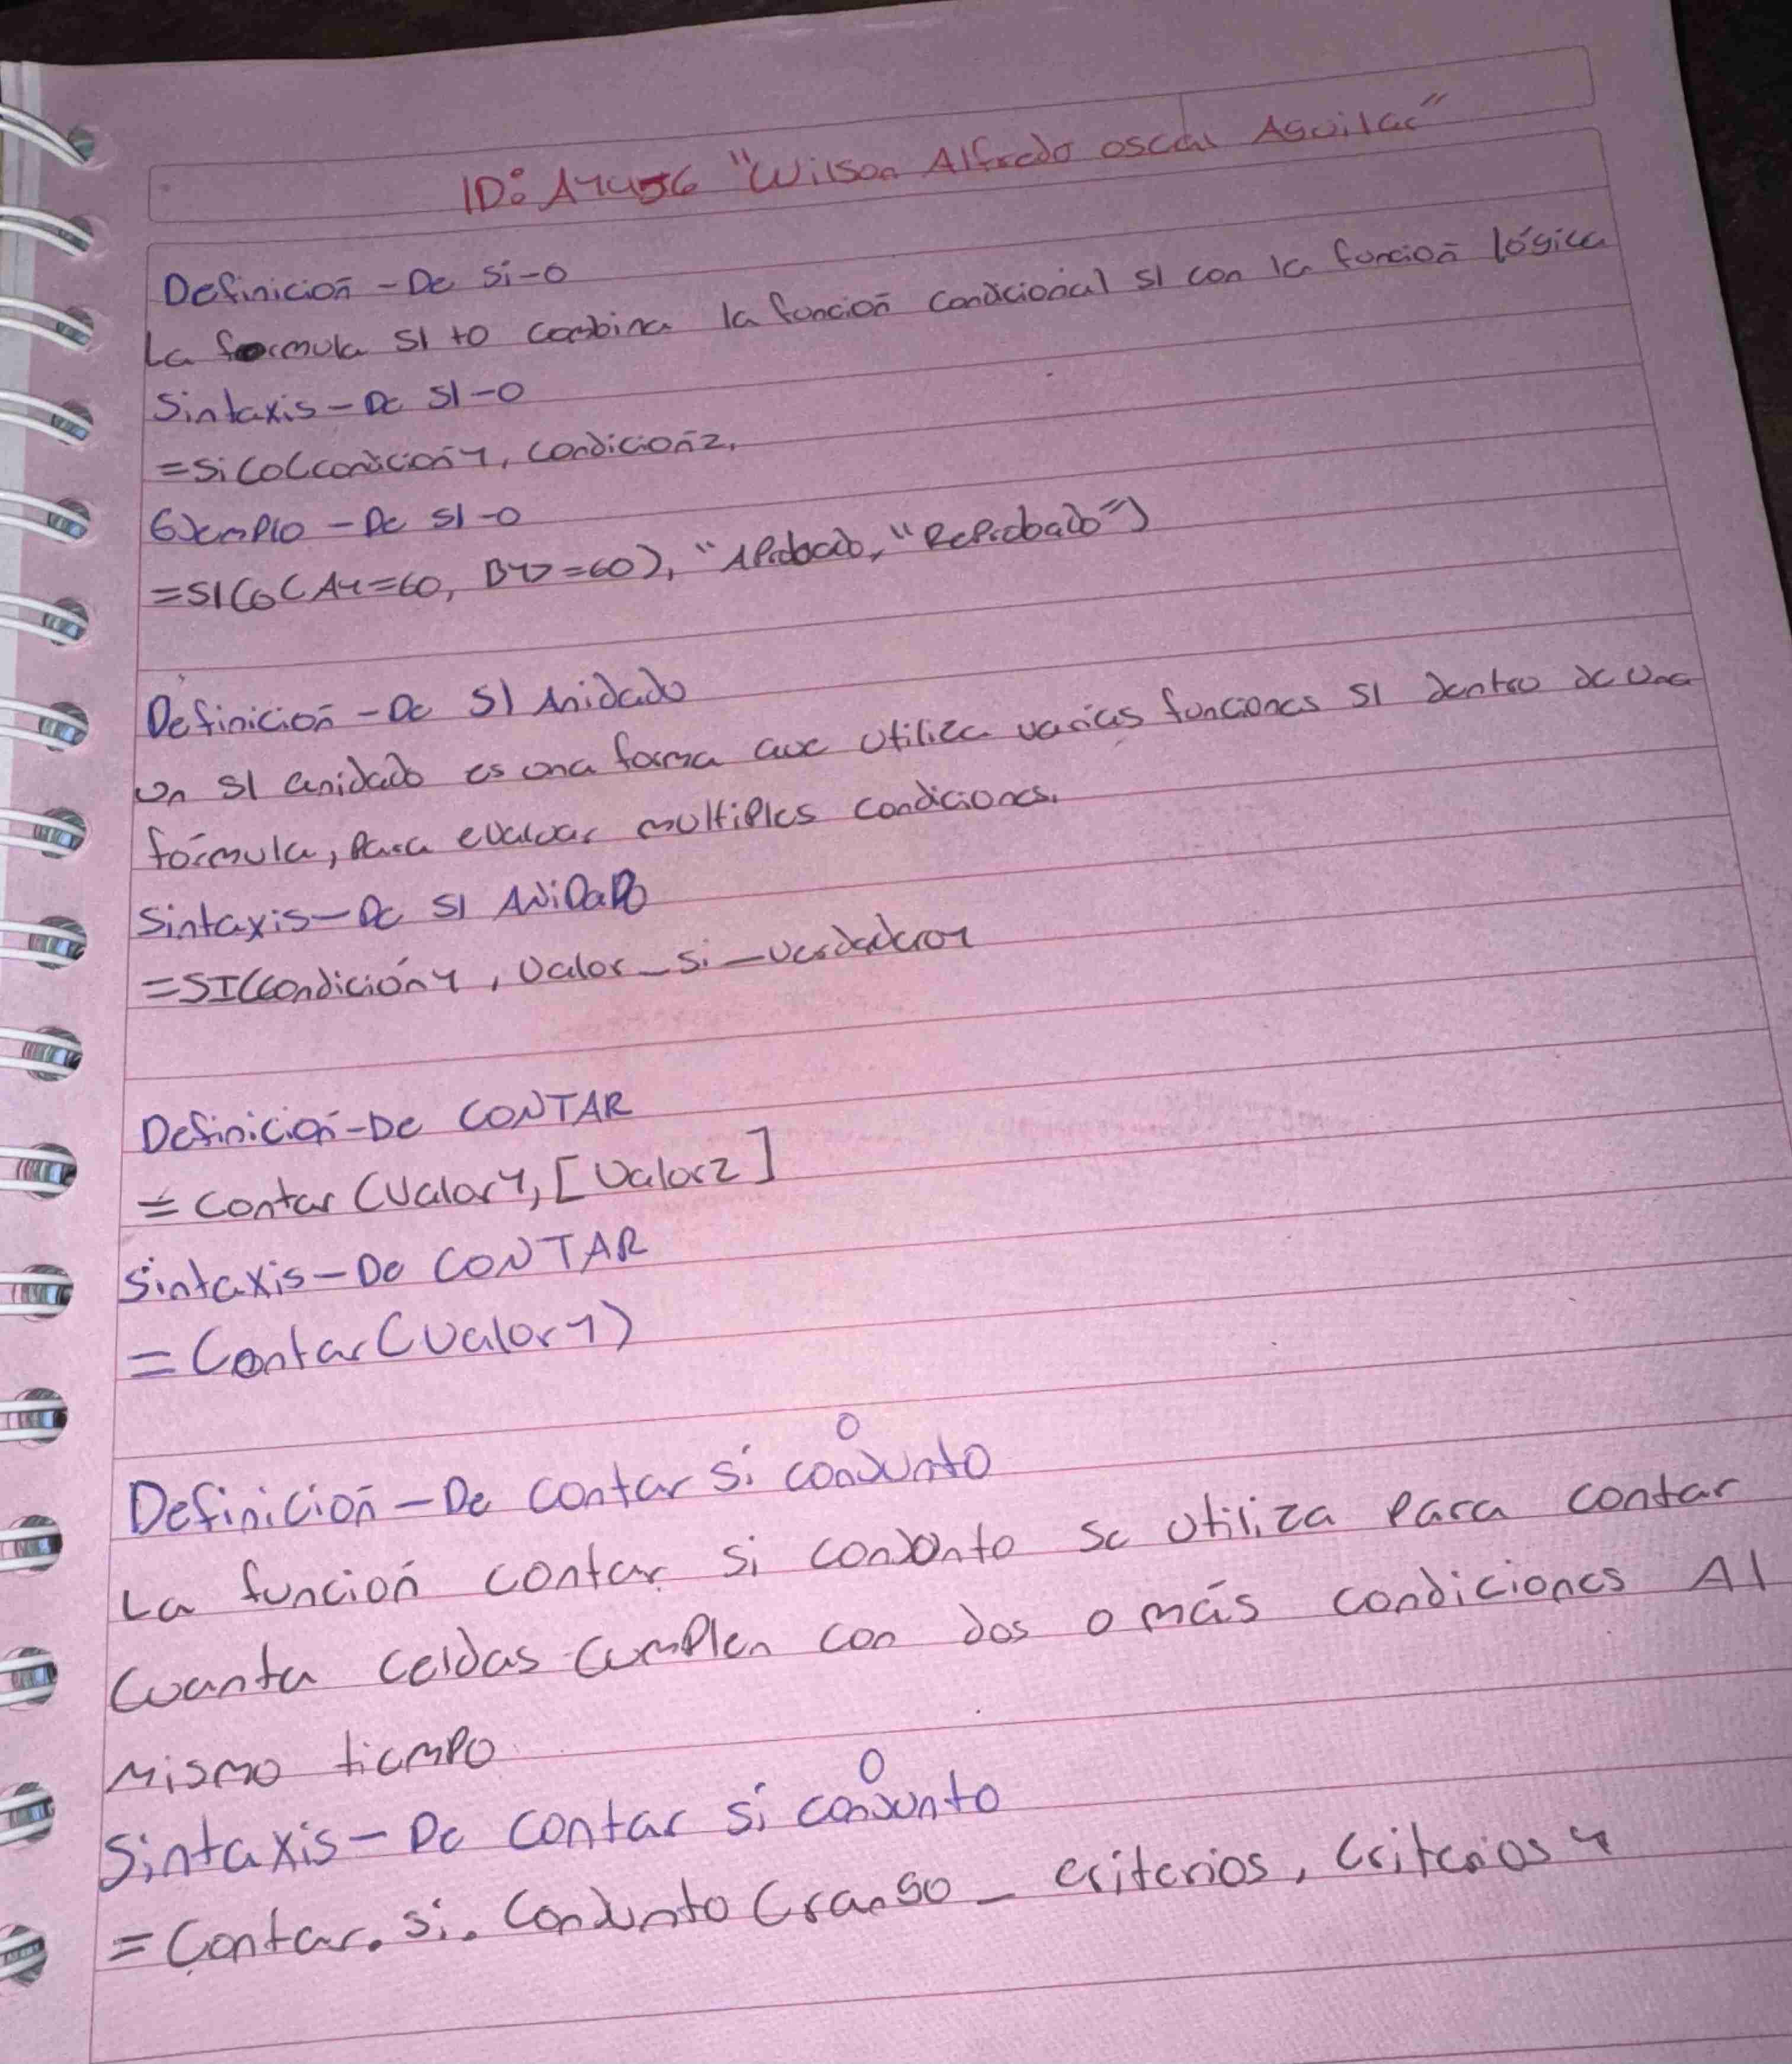 ID: A1456 "Wilson Alfredo oscar Aguilar"
Definición - De Si-O
La formula SI to combina la función condicional SI con la función lógica
Sintaxis - De SI-O
=Si(O(condición1, condición2,
Ejemplo - De SI-O
=SI(O(A1=60, B1>=60), "Aprobado, "Reprobado")
Definición - De SI Anidado
Un SI anidado es una forma que utiliza varias funciones SI dentro de una
fórmula, para evaluar multiples condiciones.
Sintaxis - De SI ANiDaDo
=SI(Condición1, Valor_si_verdadero1
Definición - De CONTAR
= contar (Valor1, [Valor2]
Sintaxis - De CONTAR
= Contar (Valor1)
Definición - De contar si conjunto O
La función contar si conjunto se utiliza para contar
Cuanta celdas cumplen con dos o más condiciones Al
Mismo tiempo
Sintaxis - De contar si conjunto O
= Contar. si. Conjunto (rango_criterios, Criterios1